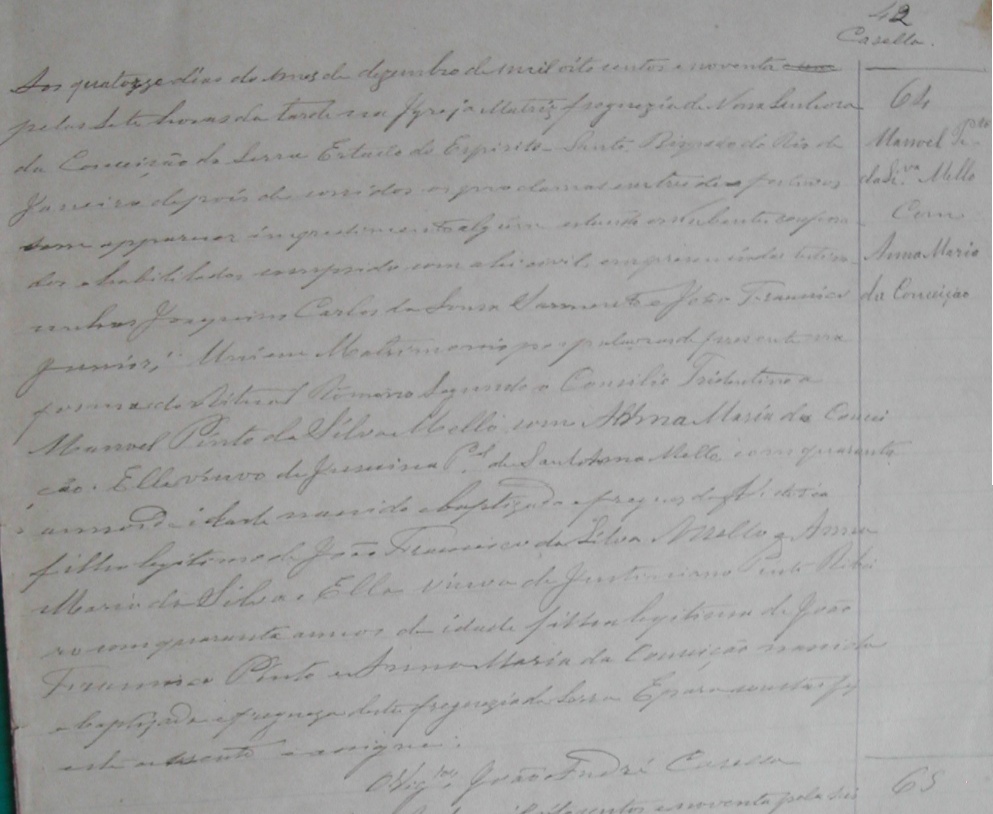 42
Casella.
Aos quatorze dias do mes de dezembro de mil oito centos e noventa
pelas sete horas da tarde na Igreja Matriz freguezia de Nossa Senhora
da Conceição da Serra Estado do Espirito Santo Bispado do Rio de
Janeiro depois de corridos os proclamas em tres dias festivos
sem apparecer impedimento algum estando os nubentes confessa
dos e habilitados cumprido com a lei civil em presença das teste
munhas Joaquim Carlos de Sousa Sarmento e João Francisco
Junior; Uni em Matrimonio por palavras de presente na
forma do Ritual Romano Segundo o Consilio Tridentino a
Manoel Pinto da Silva Mello com Anna Maria da Concei
ção. Elle viuvo de de Sant'Anna Mello com quarenta
annos de idade nascido e baptizado e freguez
filho legitimo de João Francisco da Silva Mello e Anna
Maria da Silva e Ella viuva de Justiniano Pinto Ribei
ro com quarenta annos de idade filha legitima de João
Francisco Pinto e Anna Maria da Conceição nascida
e baptizada e fregueza desta freguezia da Serra E para constar fiz
este assento e assignei.
O Vigro João André Casella
64
Manoel Pto
da Sva Mello
Com
Anna Maria
da Conceição
65
oito centos e noventa pelas seis